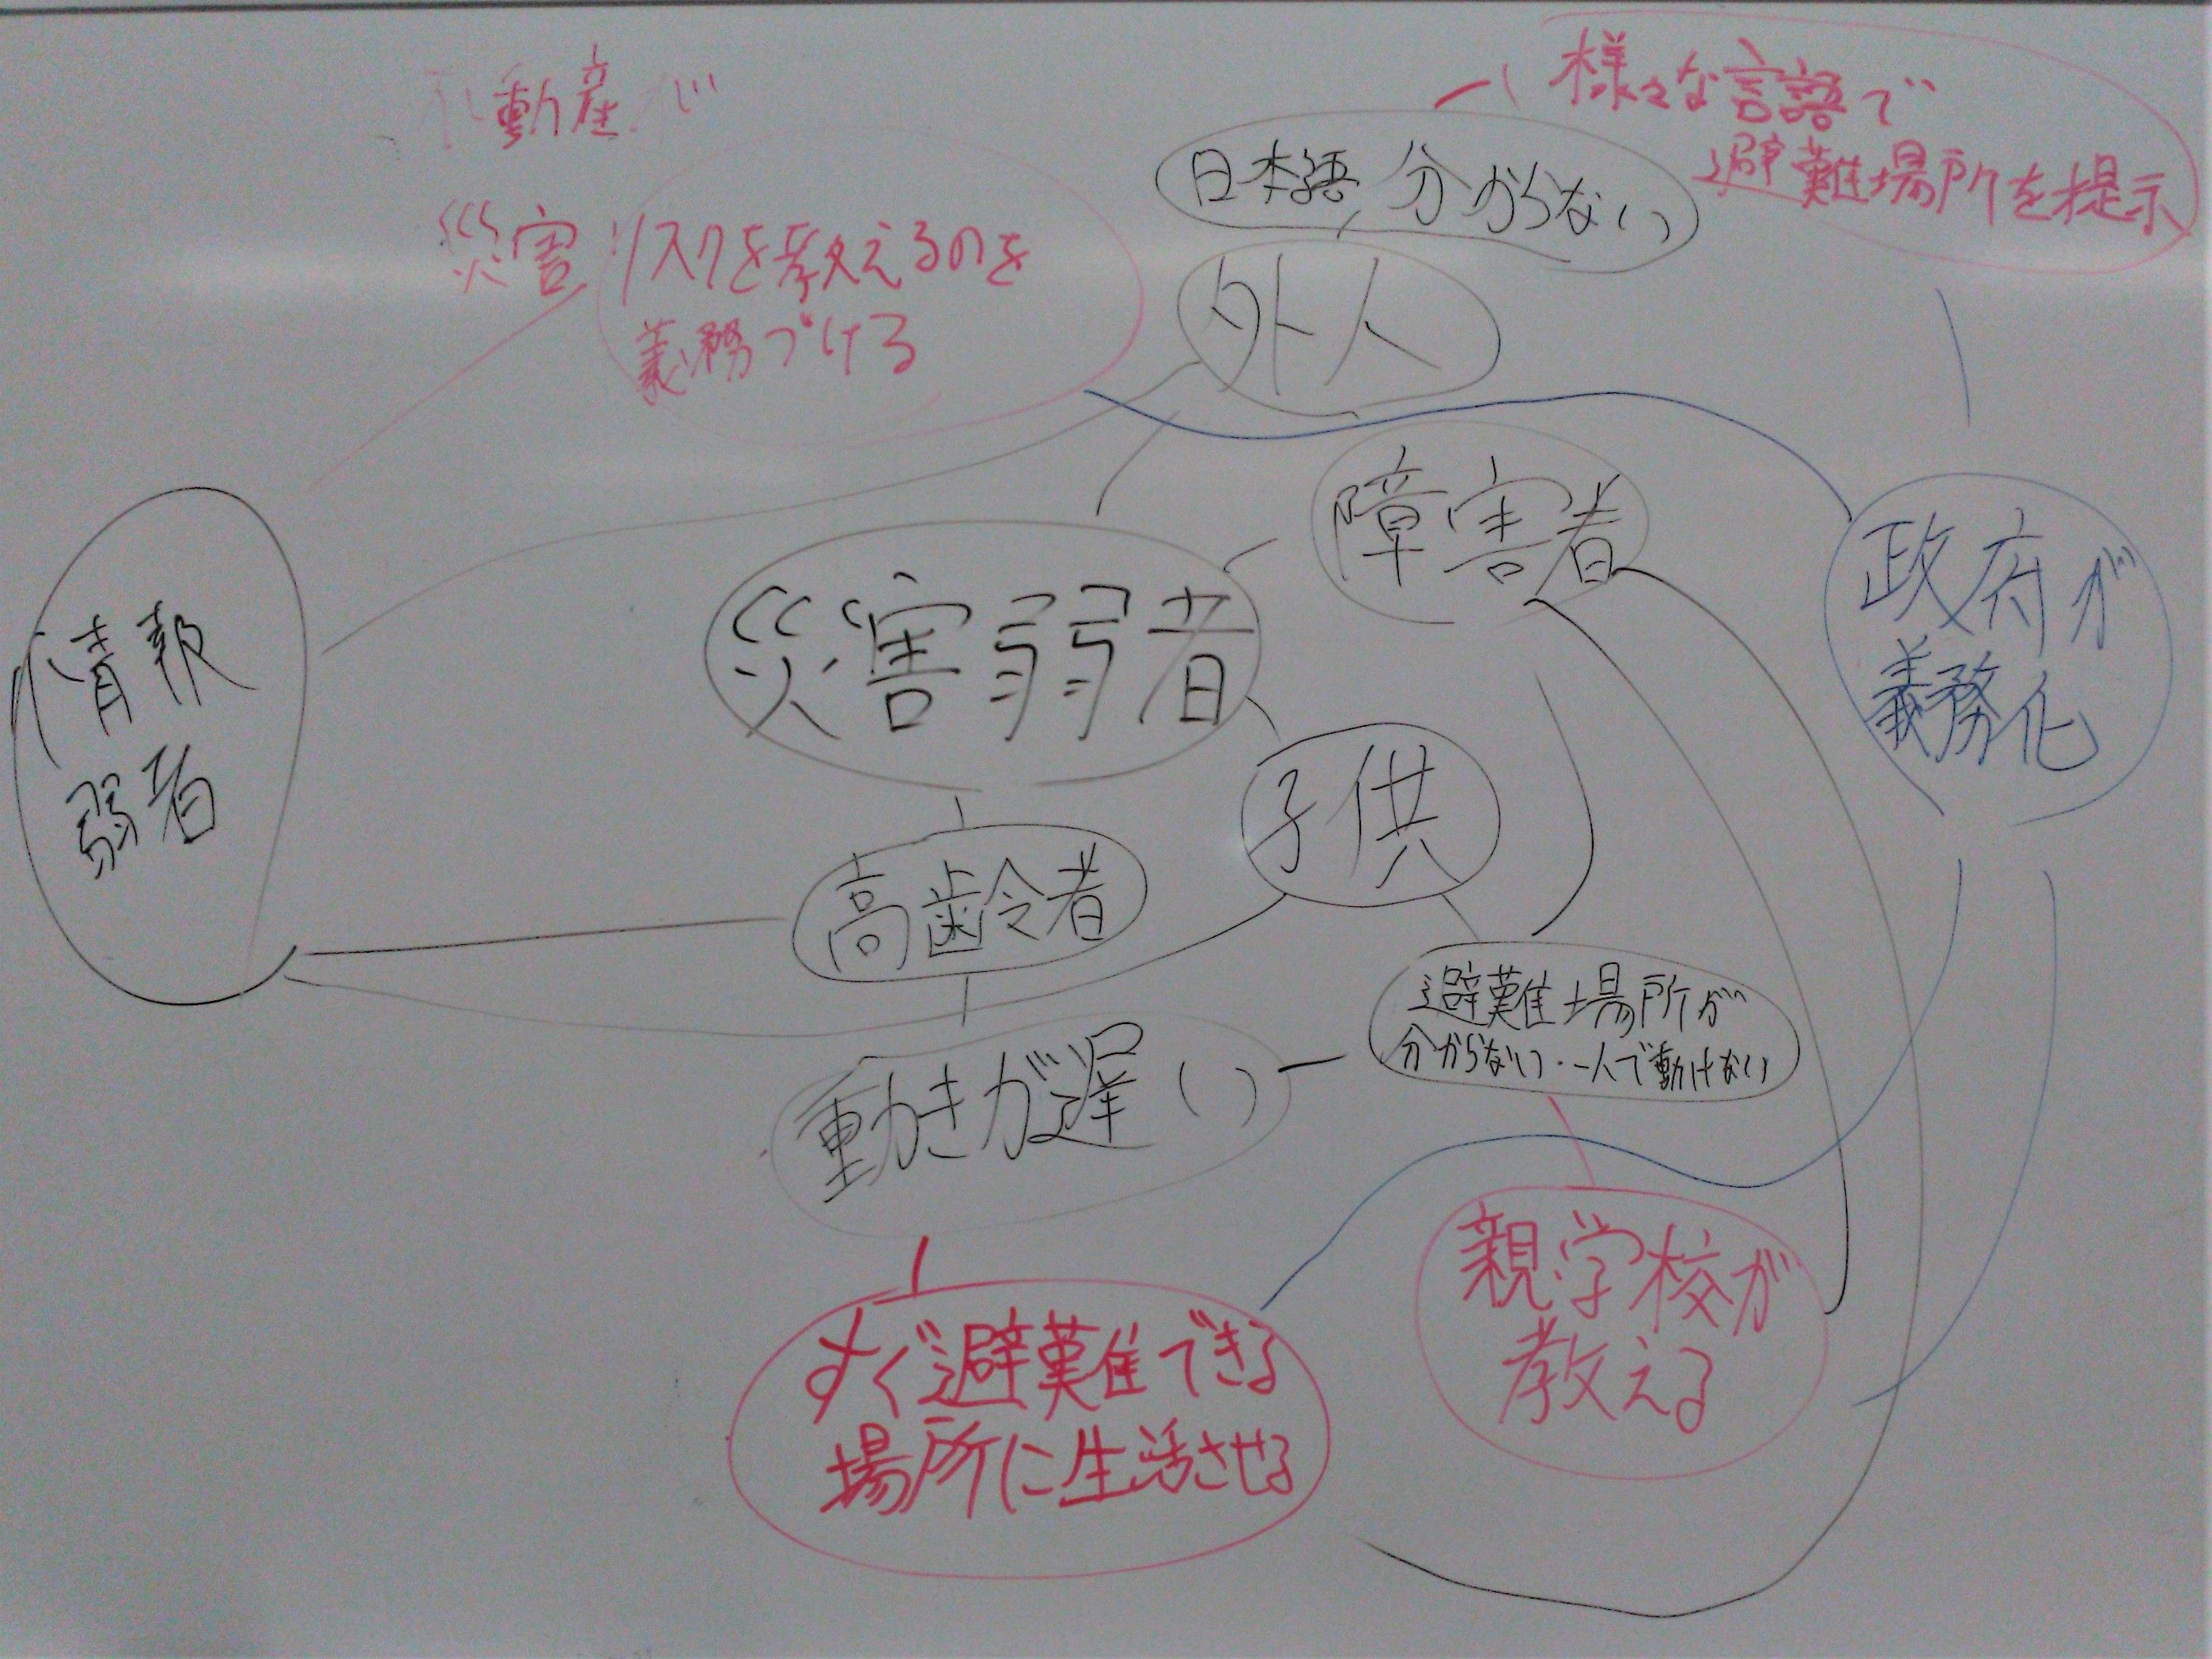 不動産が
災害リスクを教えるのを
義務づける
様々な言語で
避難場所を提示
日本語分からない
外人
障害者
政府が
義務化
災害弱者
情報
弱者
子供
高齢者
避難場所が
分からない・一人で動けない
動きが遅い
親学校が
教える
すぐ避難できる
場所に生活させる